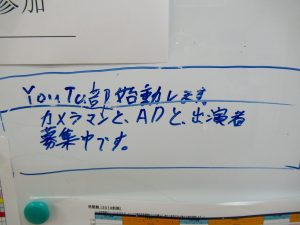 参加
YouTu部始動します。
カメラマンと、ADと、出演者
募集中です。